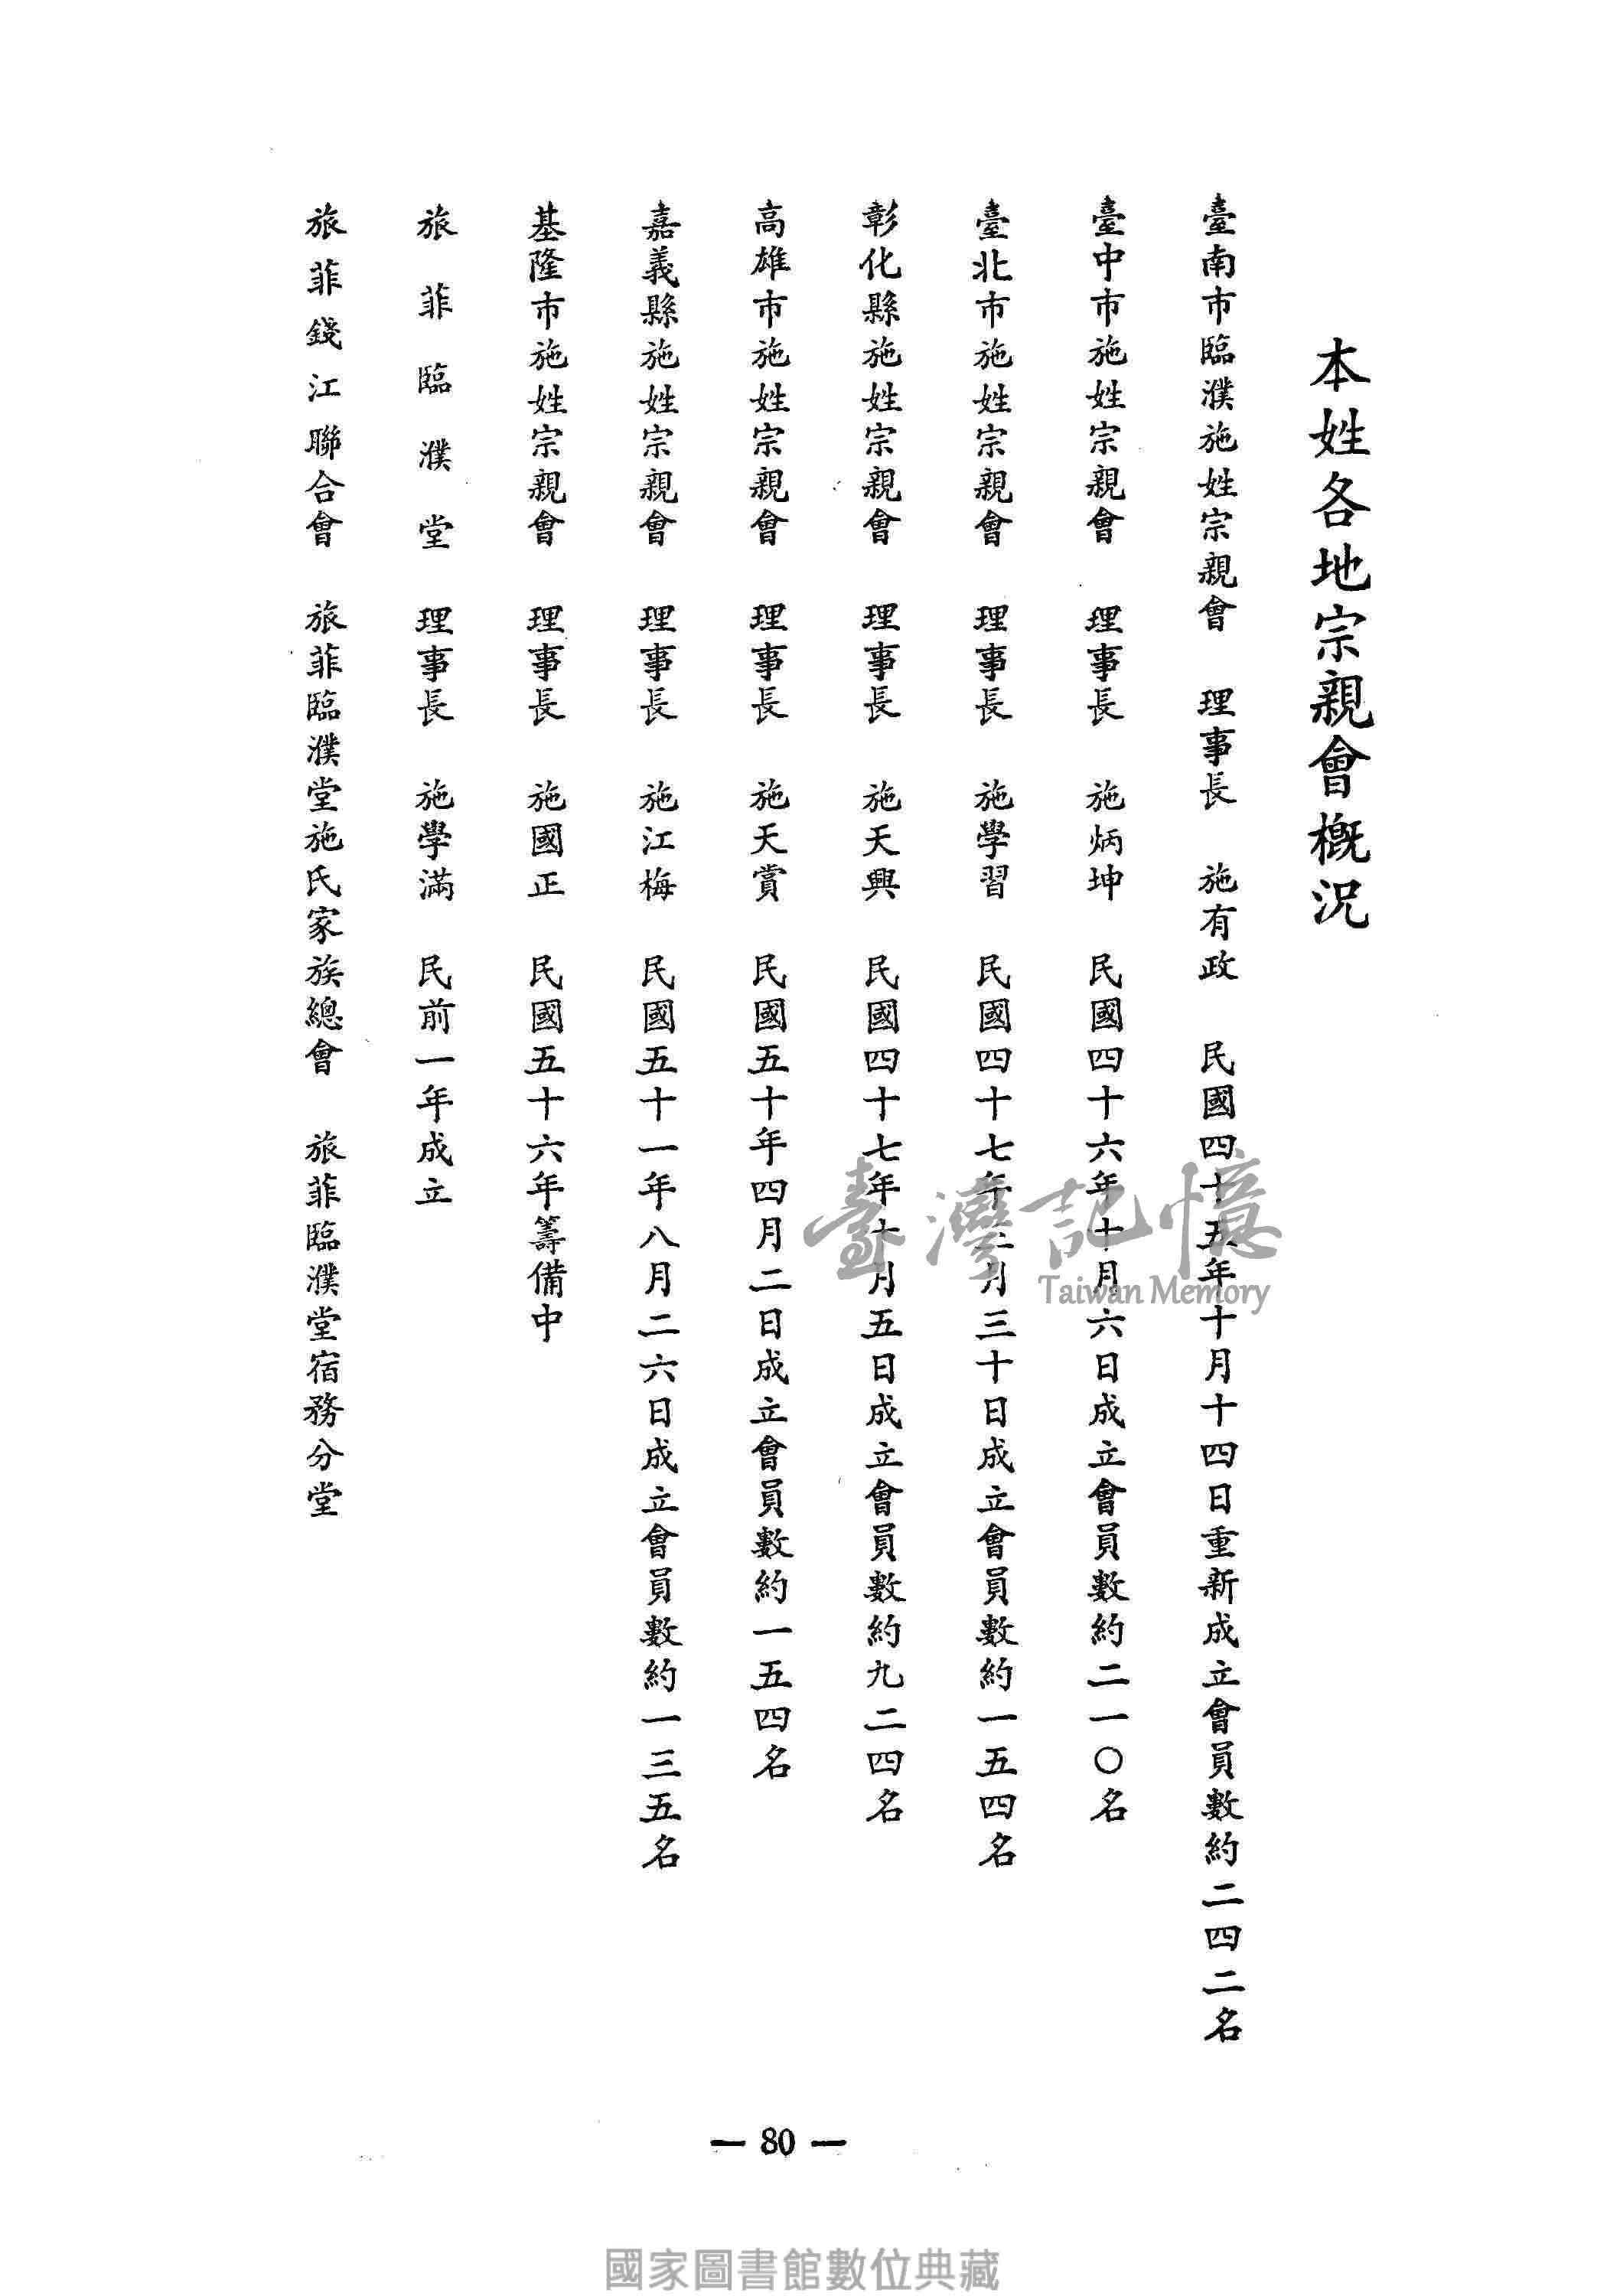 本姓各地宗親會概況
臺南市臨濮施姓宗親會 理事長 施有政 民國四十五年十月十四日重新成立會員數約二四二名
臺中市施姓宗親會 理事長 施炳坤 民國四十六年十月六日成立會員數約二一〇名
臺北市施姓宗親會 理事長 施學習 民國四十七年三月三十日成立會員數約一五四名
彰化縣施姓宗親會 理事長 施天興 民國四十七年十月五日成立會員數約九二四名
高雄市施姓宗親會 理事長 施天賞 民國五十年四月二日成立會員數約一五四名
嘉義縣施姓宗親會 理事長 施江梅 民國五十一年八月二六日成立會員數約一三五名
基隆市施姓宗親會 理事長 施國正 民國五十六年籌備中
旅菲臨濮堂 理事長 施學滿 民前一年成立
旅菲錢江聯合會 旅菲臨濮堂施氏家族總會 旅菲臨濮堂宿務分堂
臺灣記憶
Taiwan Memory
— 80 —
國家圖書館數位典藏